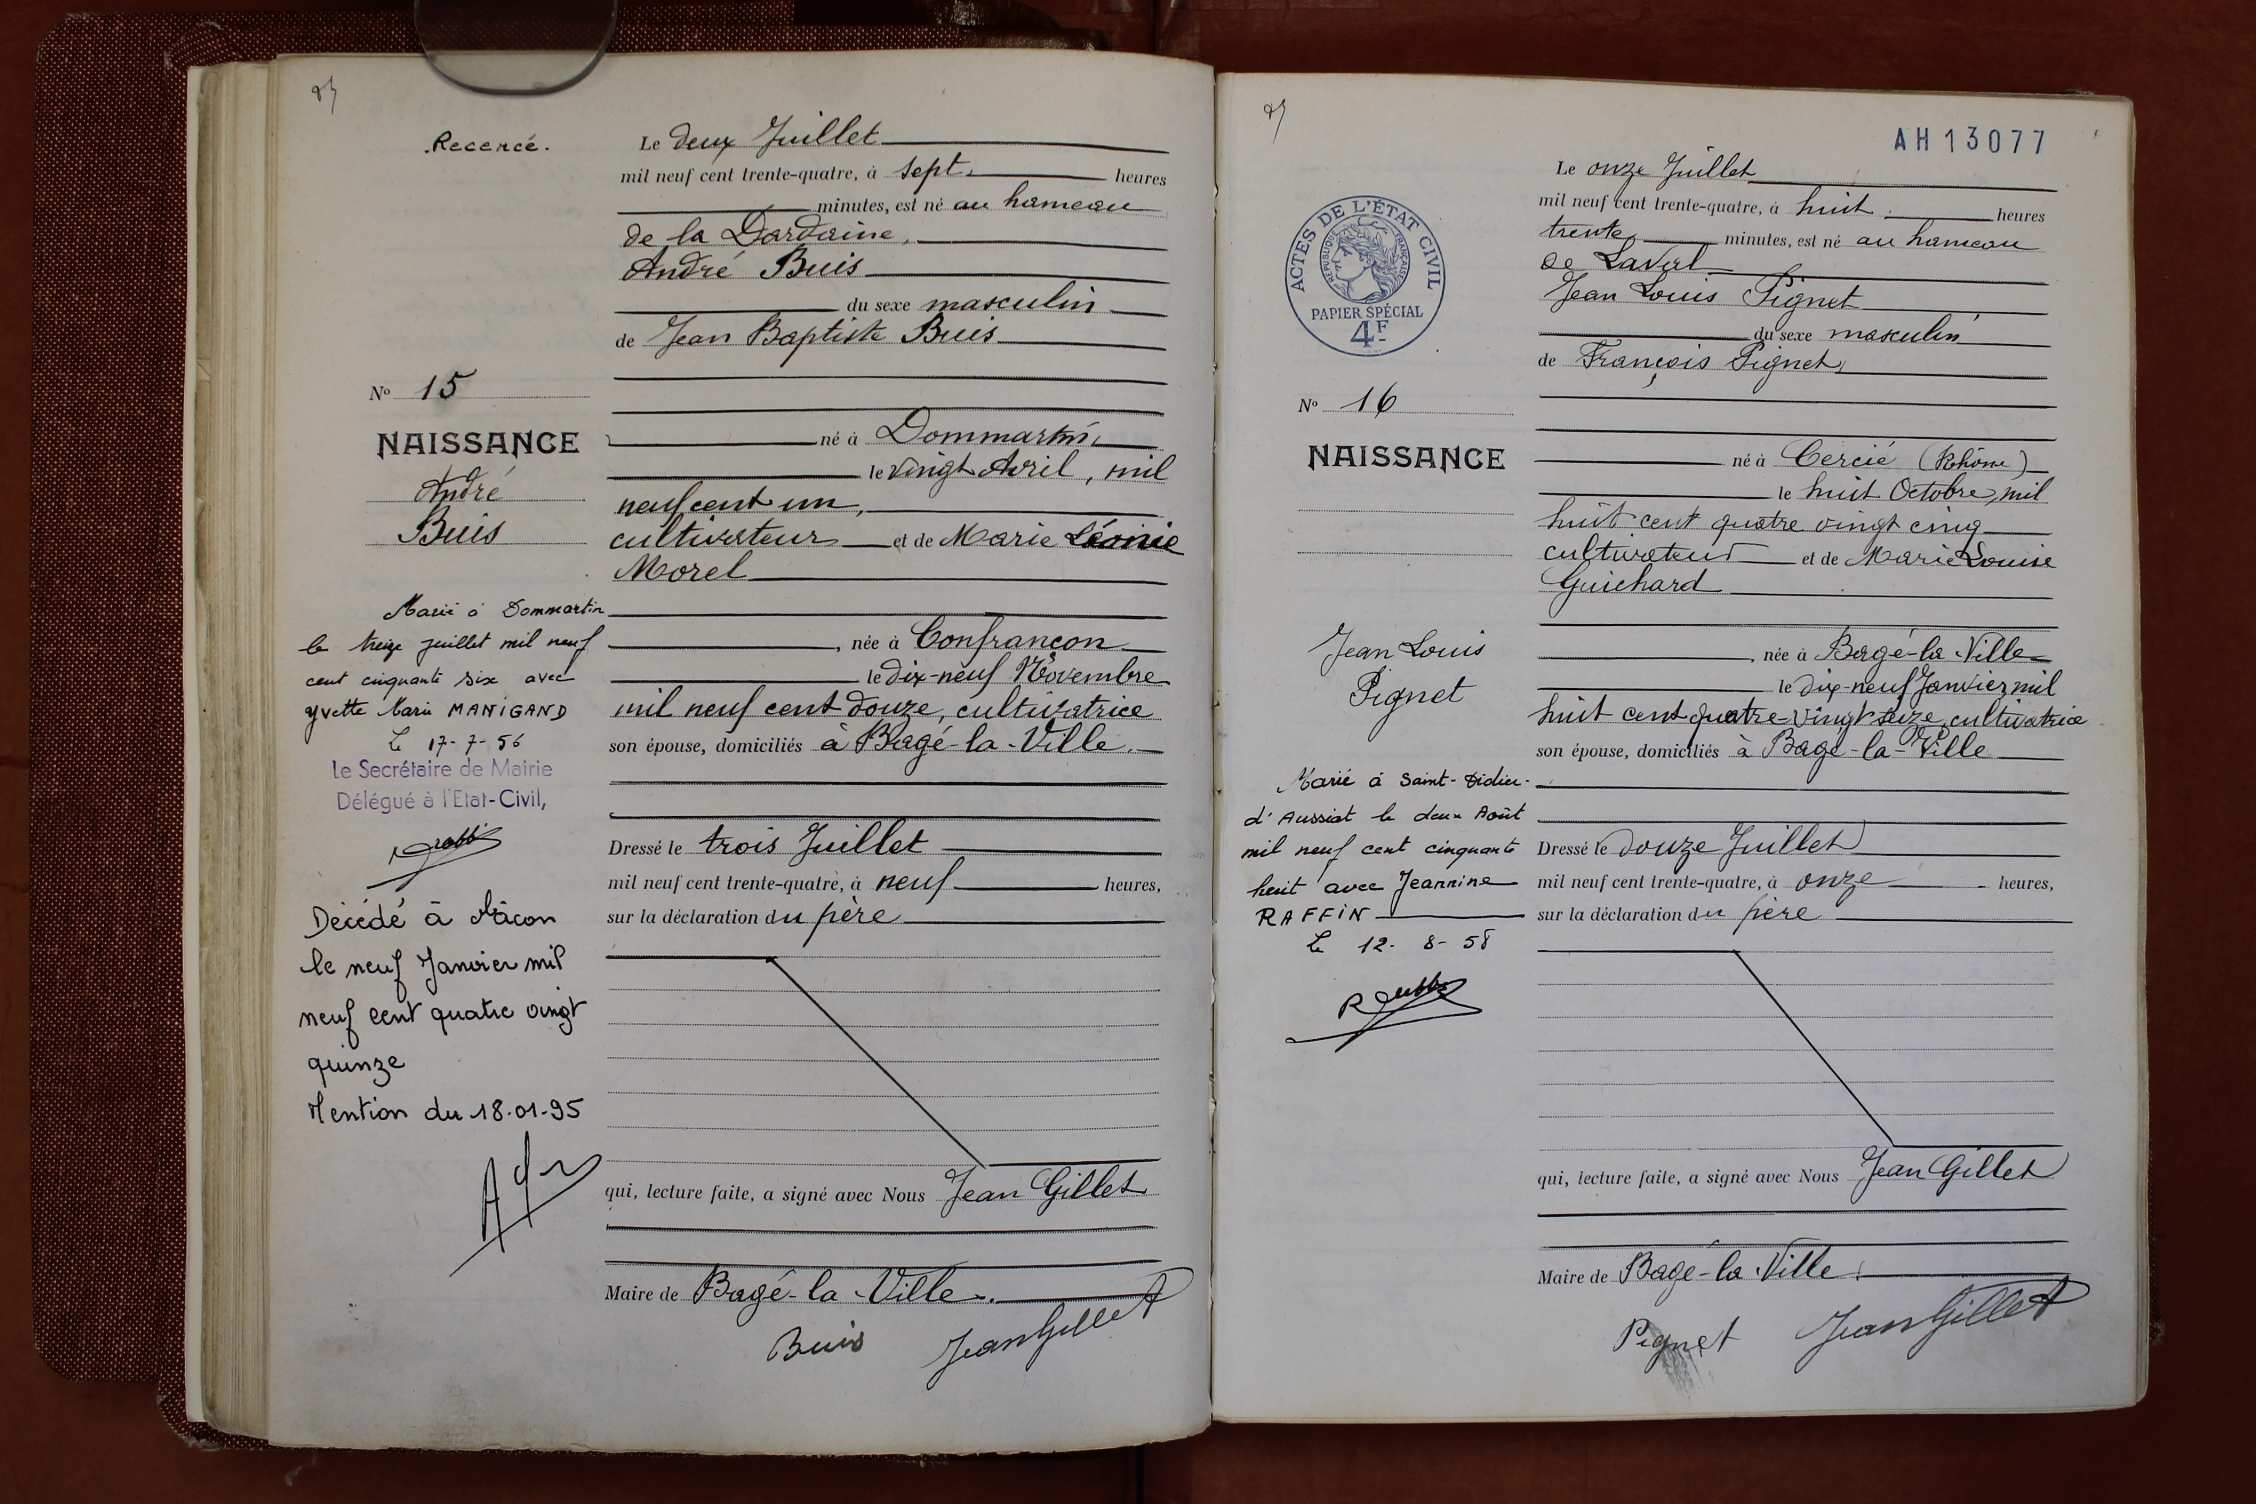 .Recencé.
Le deux Juillet
mil neuf cent trente-quatre, à sept. heures
minutes, est né au hameau
de la Dardaine.
André Buis
du sexe masculin
de Jean Baptiste Buis
né à Dommartin,
le vingt Avril, mil
neuf cent un,
cultivateur et de Marie Léonie
Morel
, née à Confrançon
le dix-neuf Novembre
mil neuf cent douze, cultivatrice
son épouse, domiciliés à Bagé-la-Ville.
Dressé le trois Juillet
mil neuf cent trente-quatre, à neuf heures,
sur la déclaration du père
qui, lecture faite, a signé avec Nous Jean Gillet
Maire de Bagé-la-Ville.
Buis JeanGillet
No 15
NAISSANCE
André
Buis
Marié à Dommartin
le treize juillet mil neuf
cent cinquante six avec
Yvette Marie MANIGAND
Le 17-7-56
Le Secrétaire de Mairie
Délégué à l'Etat-Civil,
Décédé à Mâcon
le neuf Janvier mil
neuf cent quatre vingt
quinze
Mention du 18-01-95
AH13077
Le onze Juillet
mil neuf cent trente-quatre, à huit heures
trente minutes, est né au hameau
de Laval
Jean Louis Pignet
du sexe masculin
de François Pignet,
né à Cercié (Rhône)
le huit Octobre, mil
huit cent quatre vingt cinq
cultivateur et de Marie Louise
Guichard
, née à Bagé-la-Ville
le dix-neuf Janvier mil
huit cent quatre-vingt seize, cultivatrice
son épouse, domiciliés à Bagé-la-Ville
Dressé le douze Juillet
mil neuf cent trente-quatre, à onze heures,
sur la déclaration du père
qui, lecture faite, a signé avec Nous Jean Gillet
Maire de Bagé-la-Ville.
Pignet JeanGillet
ACTES DE L'ÉTAT CIVIL
RÉPUBLIQUE FRANÇAISE
PAPIER SPÉCIAL
4F
No 16
NAISSANCE
Jean Louis
Pignet
Marié à Saint-Didier-
d'Aussiat le deux Août
mil neuf cent cinquante
huit avec Jeannine
RAFFIN
Le 12-8-58